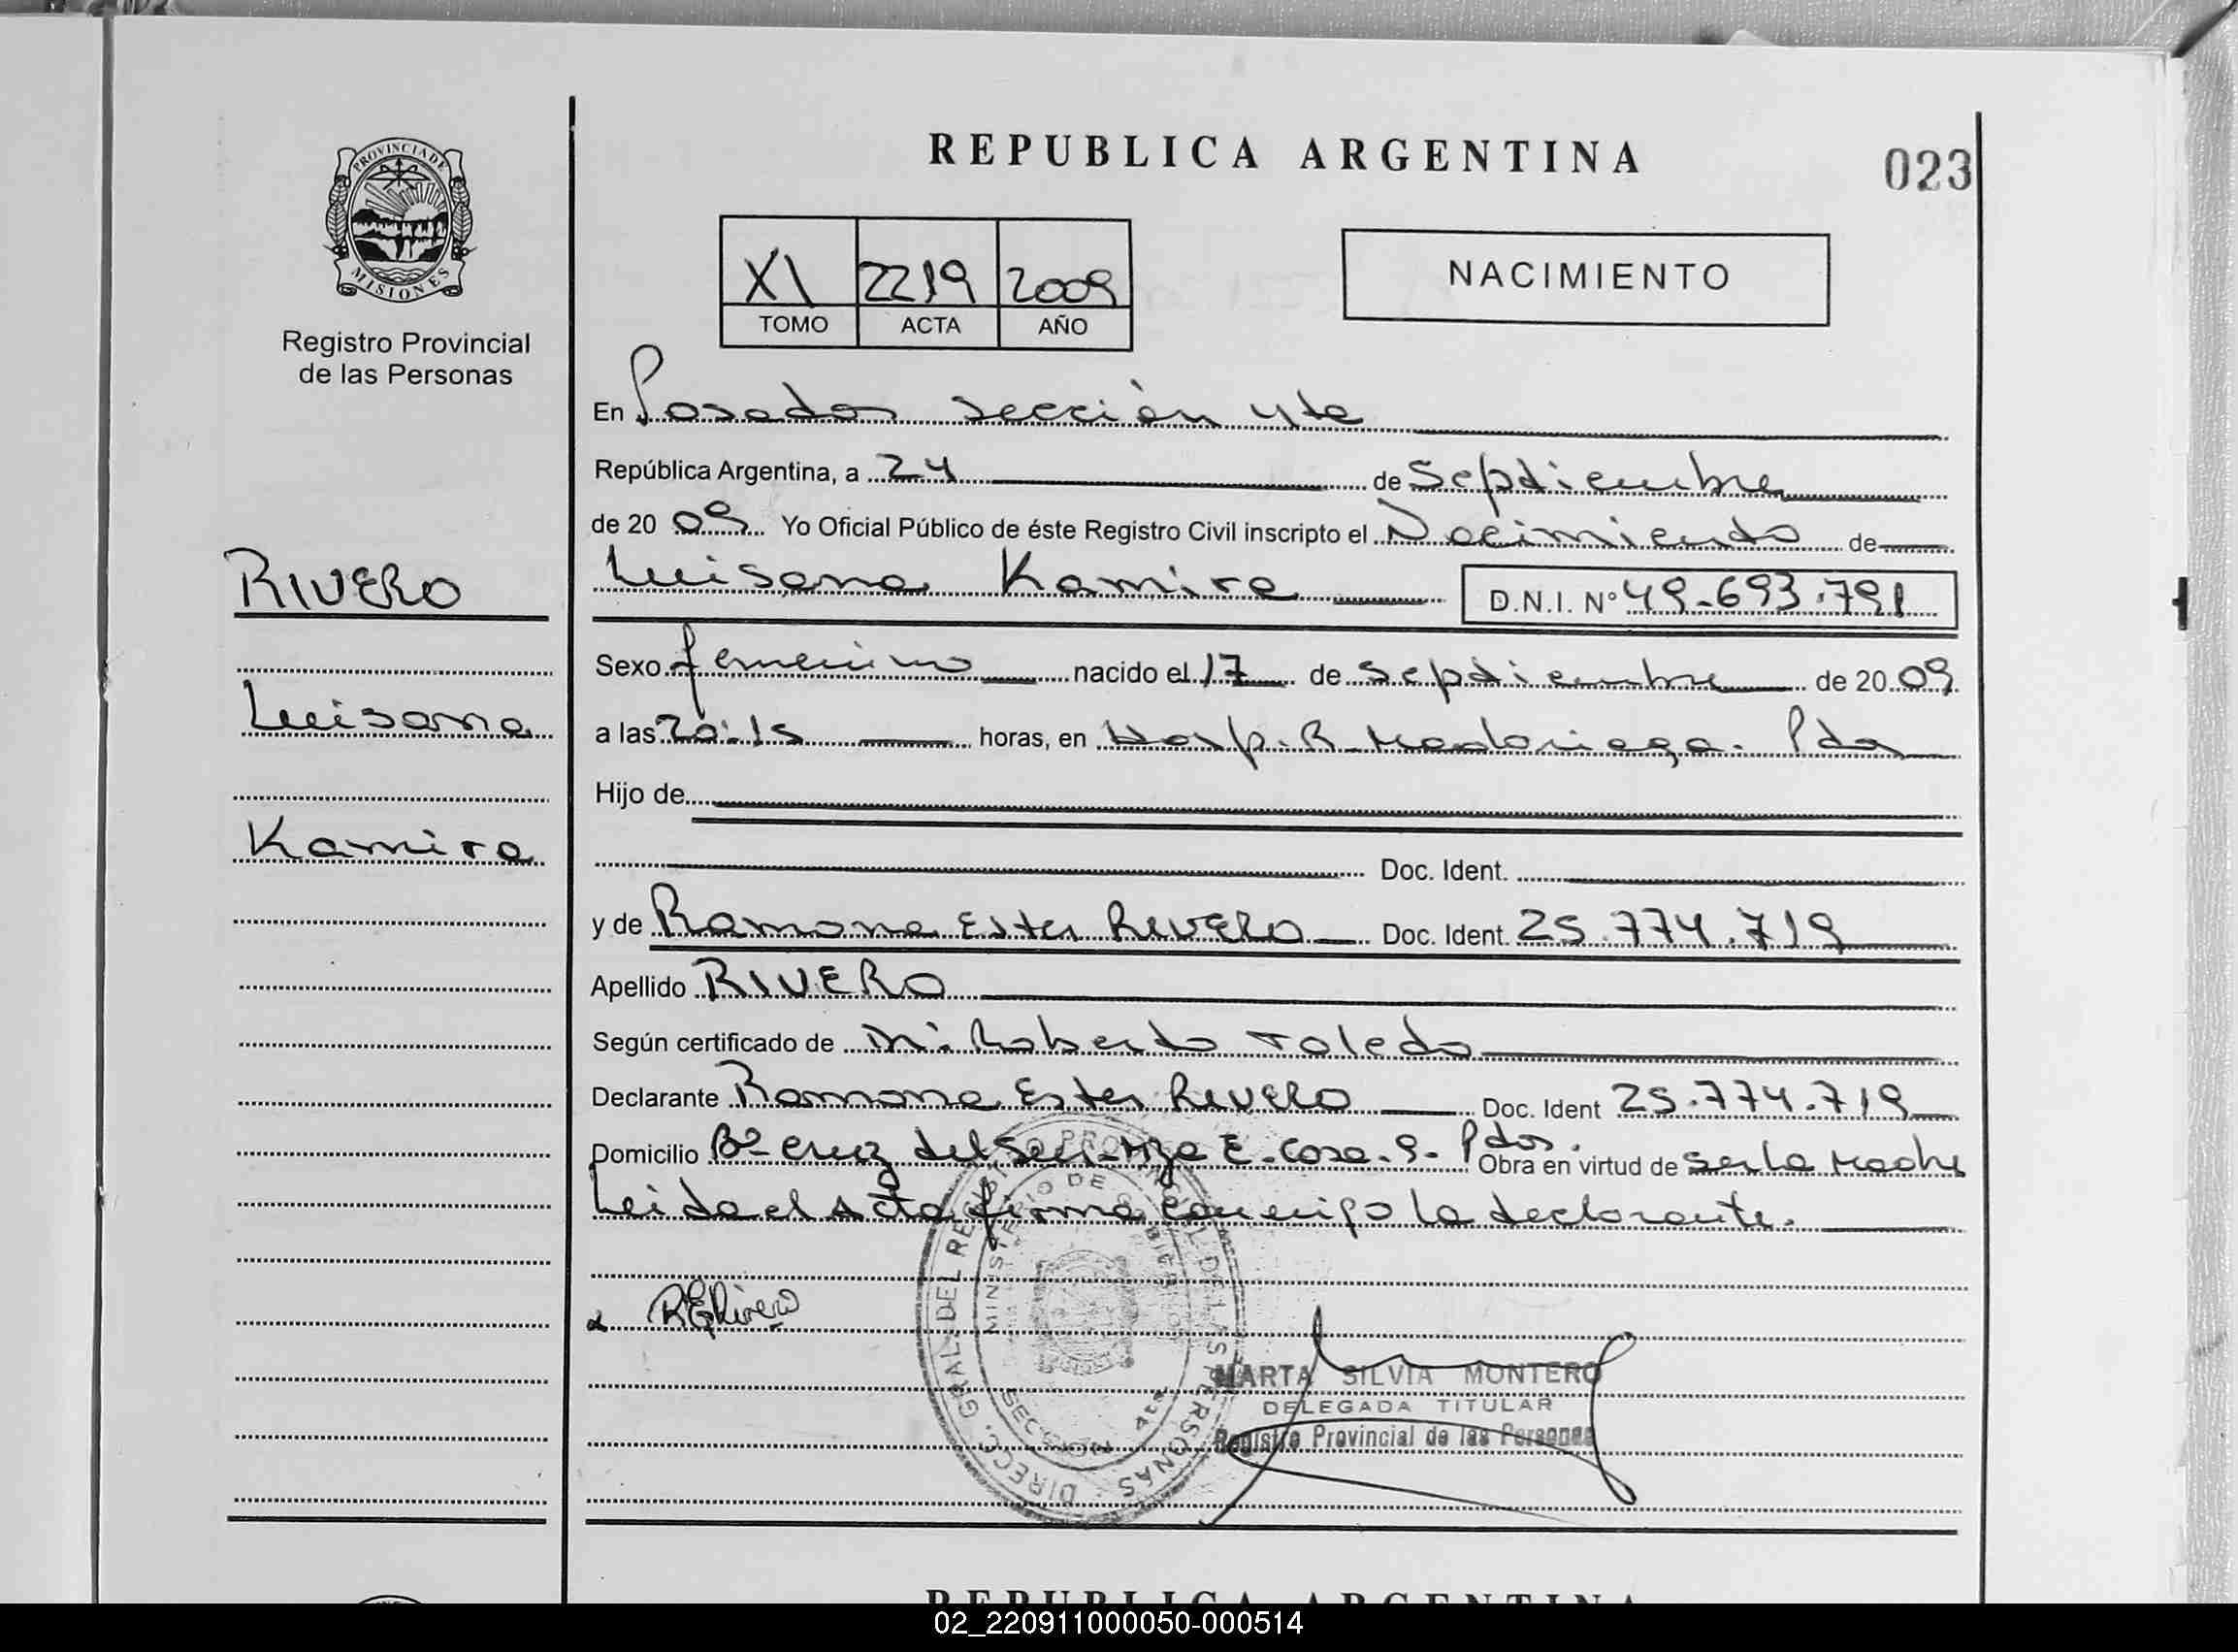 PROVINCIA DE
MISIONES
Registro Provincial
de las Personas
RIVERO
Luisana
Kamira
REPUBLICA ARGENTINA
023
XI 2219 2009
TOMO ACTA AÑO
NACIMIENTO
En Posadas sección 4ta
República Argentina, a 24 de Septiembre
de 20 09 Yo Oficial Público de éste Registro Civil inscripto el Nacimiento de
Luisana Kamira D.N.I. Nº 49.693.791
Sexo femenino nacido el 17 de Septiembre de 20 09
a las 20:15 horas, en Hosp. R. Madariaga. Pdas
Hijo de
Doc. Ident.
y de Ramona Ester Rivero Doc. Ident. 25.774.719
Apellido RIVERO
Según certificado de Roberto Toledo
Declarante Ramona Ester Rivero Doc. Ident 25.774.719
Domicilio Bº Cruz del Sur-Mza E-Casa.9- Pdas. Obra en virtud de ser la Madre
Leida el Acta firma conmigo la declarante.
RERivero
DIRECC. GRAL. DEL REGISTRO PROVINCIAL DE LAS PERSONAS
MINISTERIO DE GOBIERNO
SECCION 4ta
MARTA SILVIA MONTERO
DELEGADA TITULAR
Registro Provincial de las Personas
REPUBLICA ARGENTINA
02_220911000050-000514